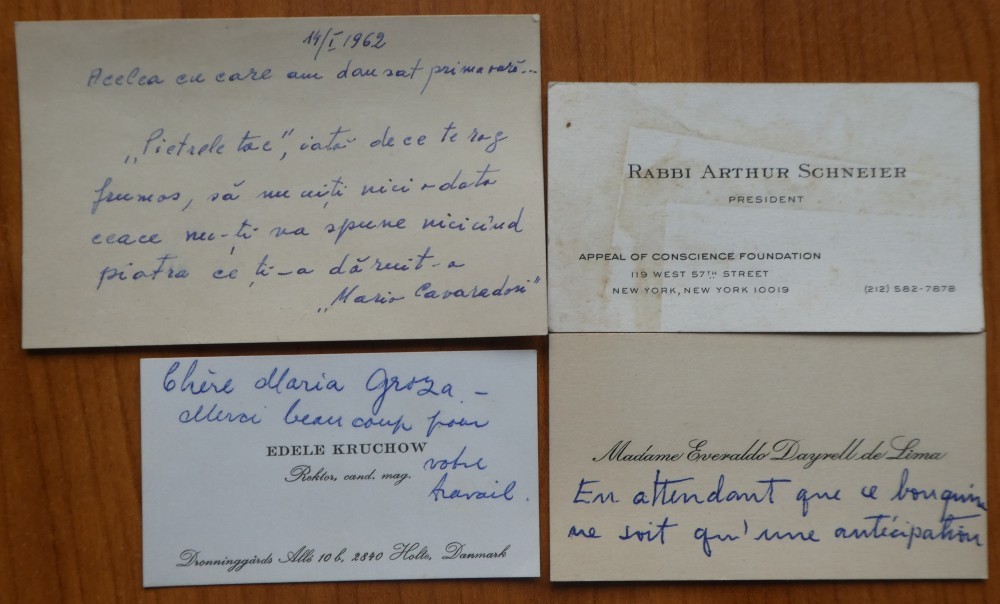 14/I 1962
Acelea cu care am dansat primavară...
„Pietrele tac”, iată de ce te rog
frumos, să nu uiți nici o dată
ceace nu-ți va spune nicicînd
piatra ce ți-a dăruit-o
„Mario Cavaradosi”
RABBI ARTHUR SCHNEIER
PRESIDENT
APPEAL OF CONSCIENCE FOUNDATION
119 WEST 57TH STREET
NEW YORK, NEW YORK 10019
(212) 582-7878
Chère Maria Groza –
Merci beaucoup pour
EDELE KRUCHOW
votre
Rektor, cand. mag.
travail.
Dronninggårds Allé 10 b, 2840 Holte, Danmark
Madame Everaldo Dayrell de Lima
En attendant que ce bouquin
ne soit qu'une antécipation